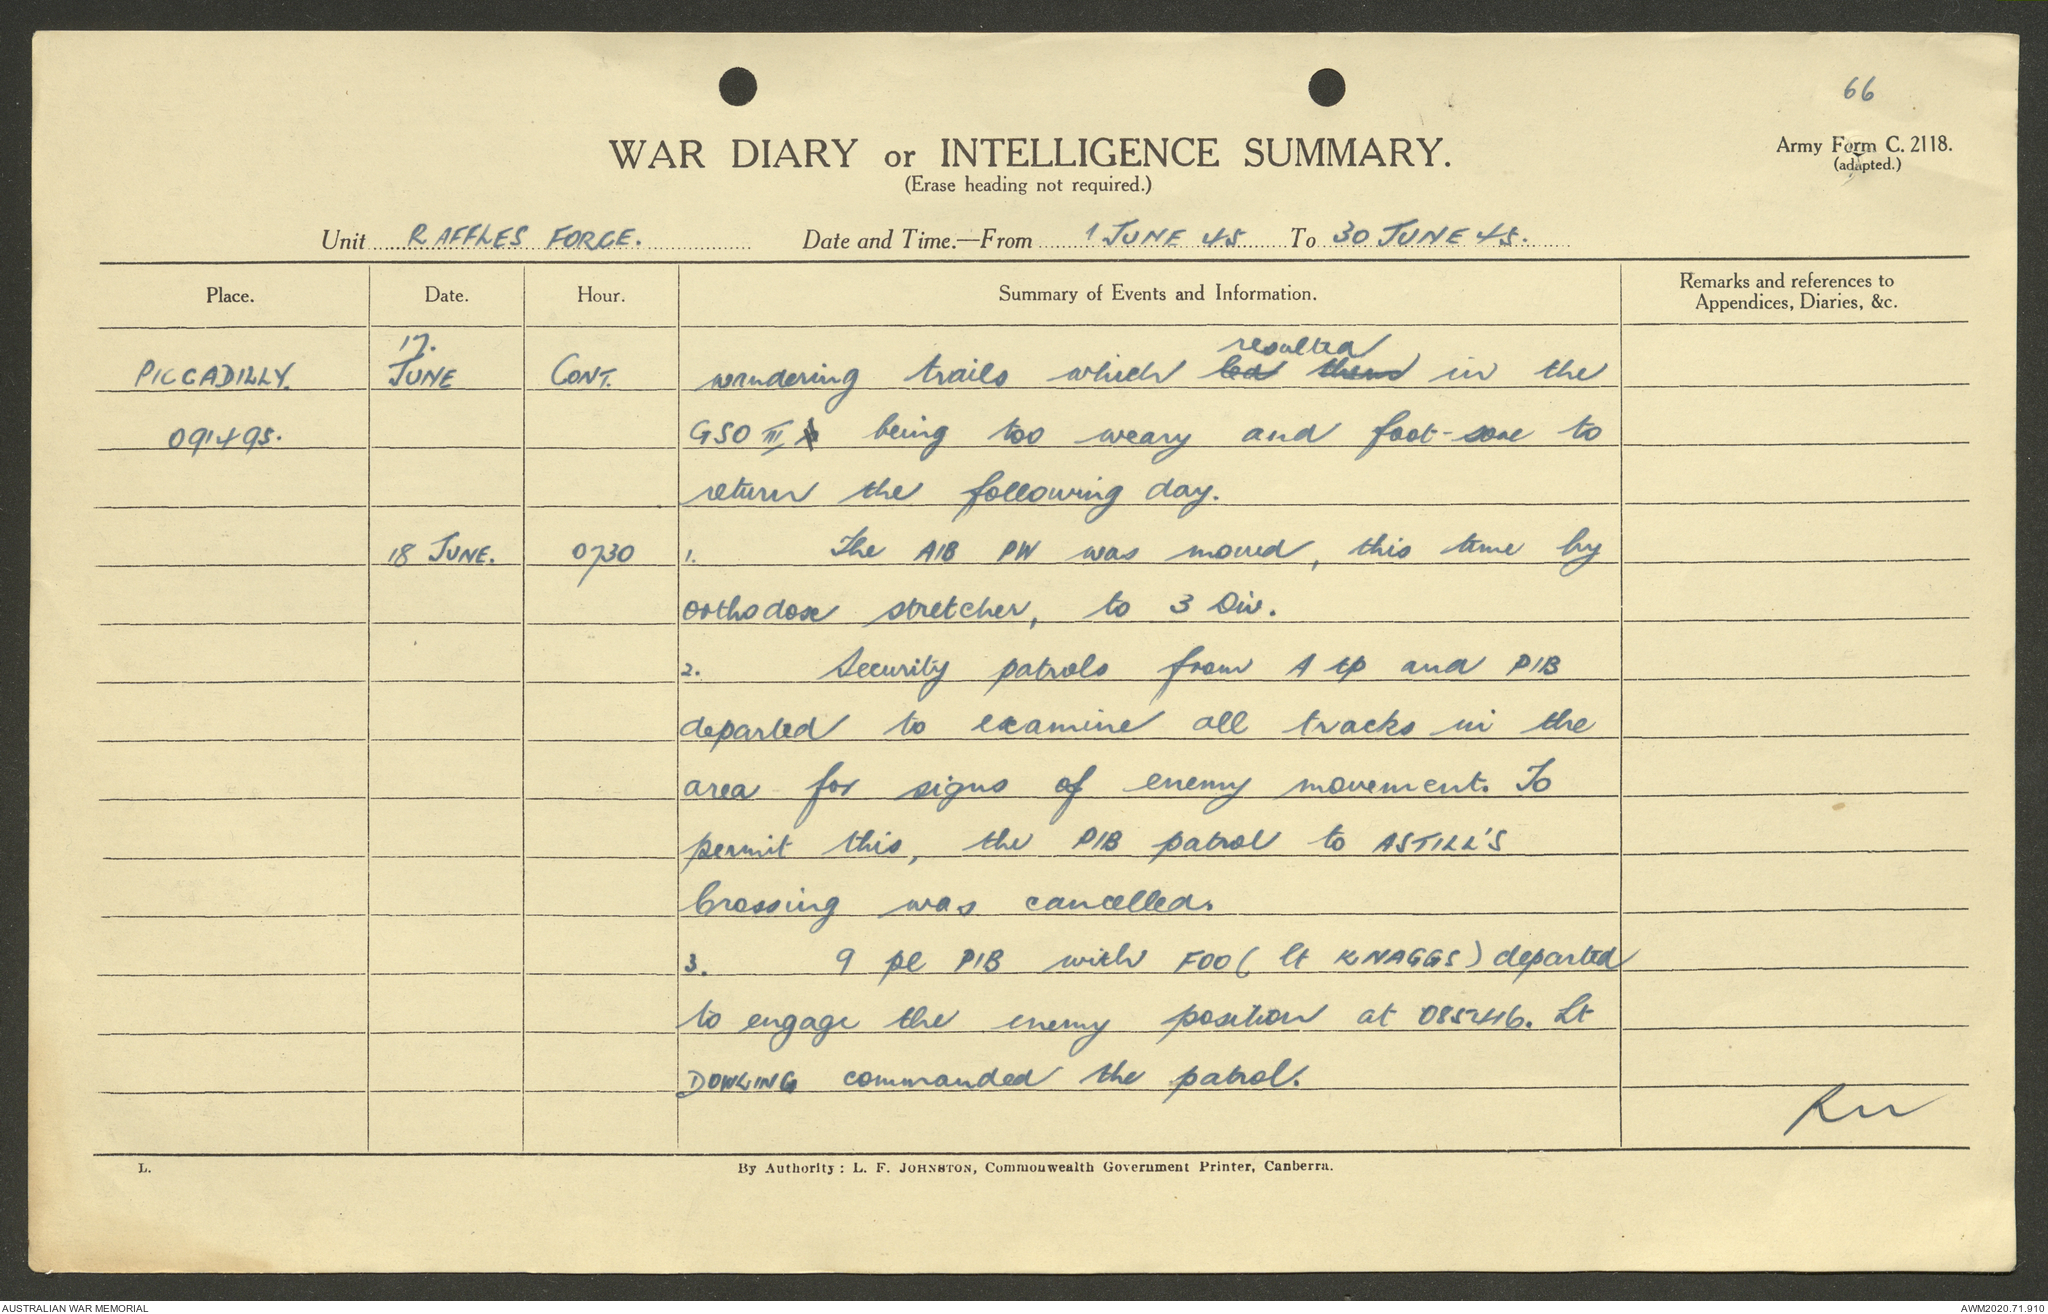 66
WAR DIARY or INTELLIGENCE SUMMARY.
Army Form C. 2118.
(adapted.)
(Erase heading not required.)
Unit RAFFLES FORCE. Date and Time.—From 1 JUNE 45 To 30 JUNE 45.
Place. Date. Hour. Summary of Events and Information. Remarks and references to Appendices, Diaries, &c.
resulted
PICCADILLY. 17. JUNE CONT. wandering trails which led them in the
091495. GSO III being too weary and foot-sore to
return the following day.
18 JUNE. 0730 1. The AIB PW was moved, this time by
orthodox stretcher, to 3 Div.
2. Security patrols from A tp and PIB
departed to examine all tracks in the
area for signs of enemy movement. To
permit this, the PIB patrol to ASTILL'S
Crossing was cancelled.
3. 9 pl PIB with FOO (Lt KNAGGS) departed
to engage the enemy position at 085246. Lt
DOWLING commanded the patrol.
L. By Authority: L. F. JOHNSTON, Commonwealth Government Printer, Canberra.
AUSTRALIAN WAR MEMORIAL AWM2020.71.910